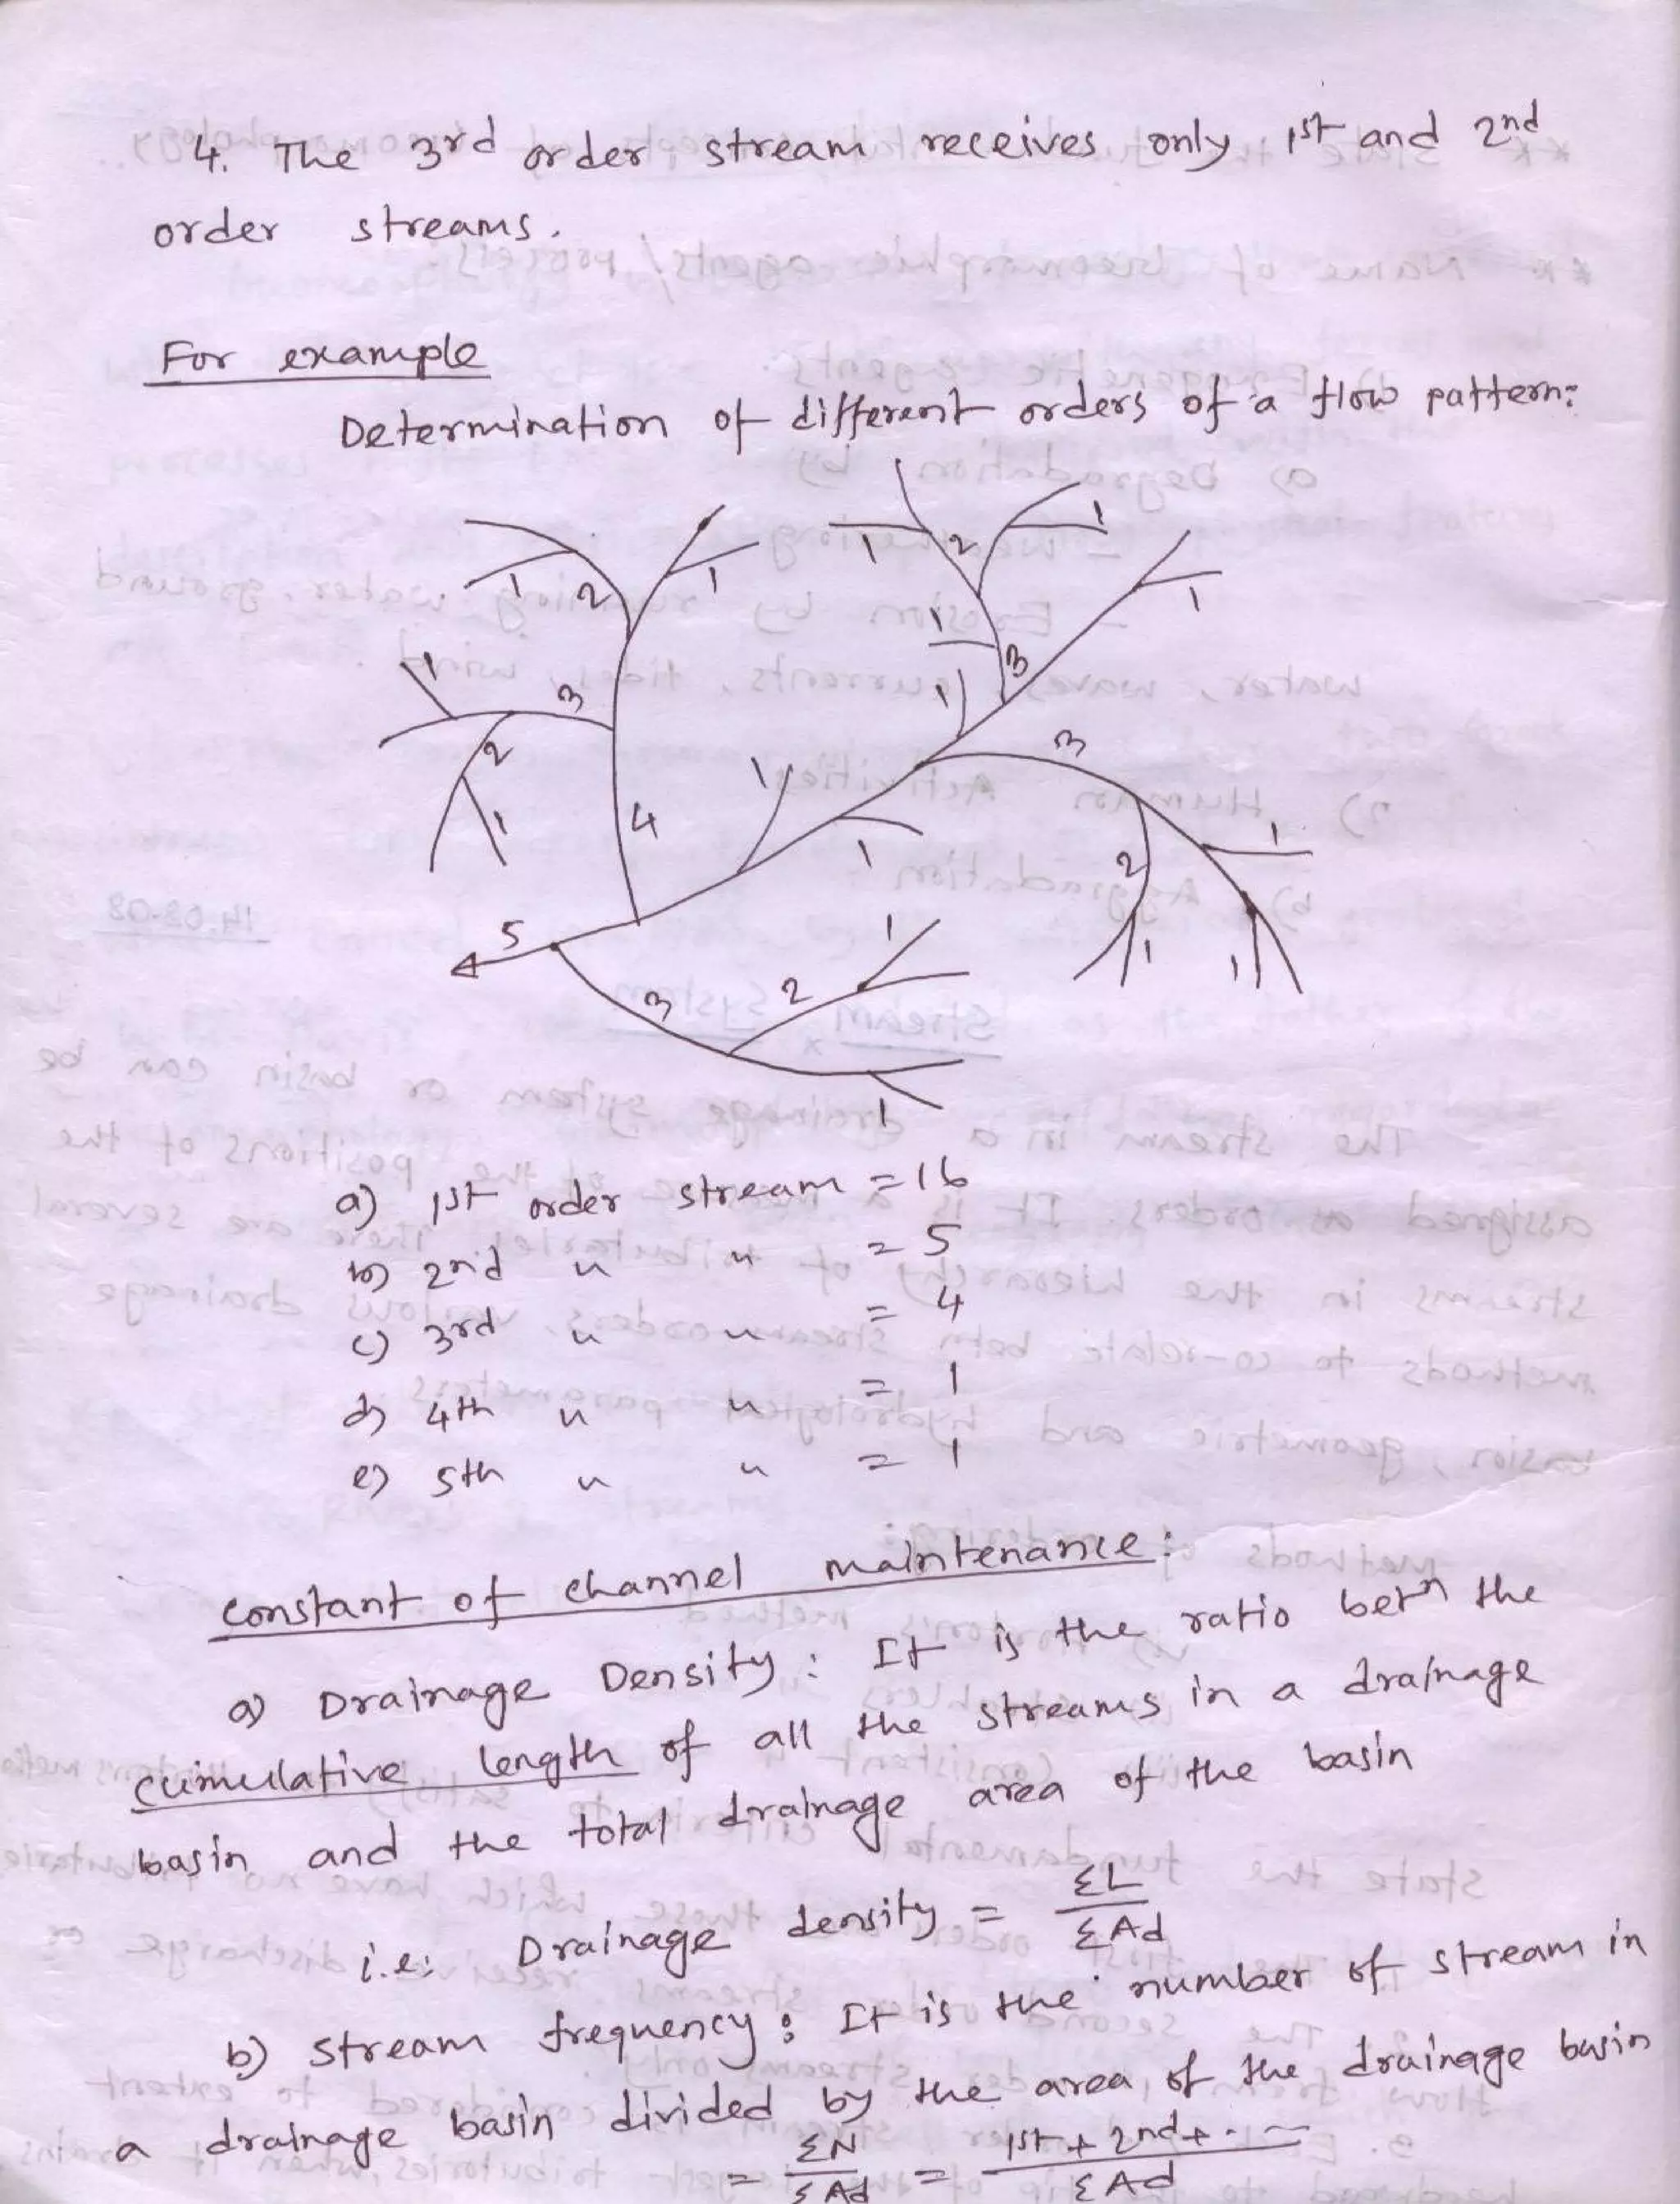 4. The 3rd order stream receives only 1st and 2nd
order streams.
For example
Determination of different orders of a flow pattern:
1
1
2
1
1
2
1
1
1
3
3
1
1
2
3
1
1
4
1
2
1
1
1
5
1
2
3
1
a) 1st order stream = 16
b) 2nd u u = 5
c) 3rd u u = 4
d) 4th u u = 1
e) 5th u u = 1
Constant of channel maintenance:
a) Drainage Density: It is the ratio betn the
cumulative length of all the streams in a drainage
basin and the total drainage area of the basin
i.e: Drainage density = ΣL / ΣAd
b) Stream frequency: It is the number of stream in
a drainage basin divided by the area of the drainage basin
= ΣN / ΣAd = 1st + 2nd + .. — / ΣAd